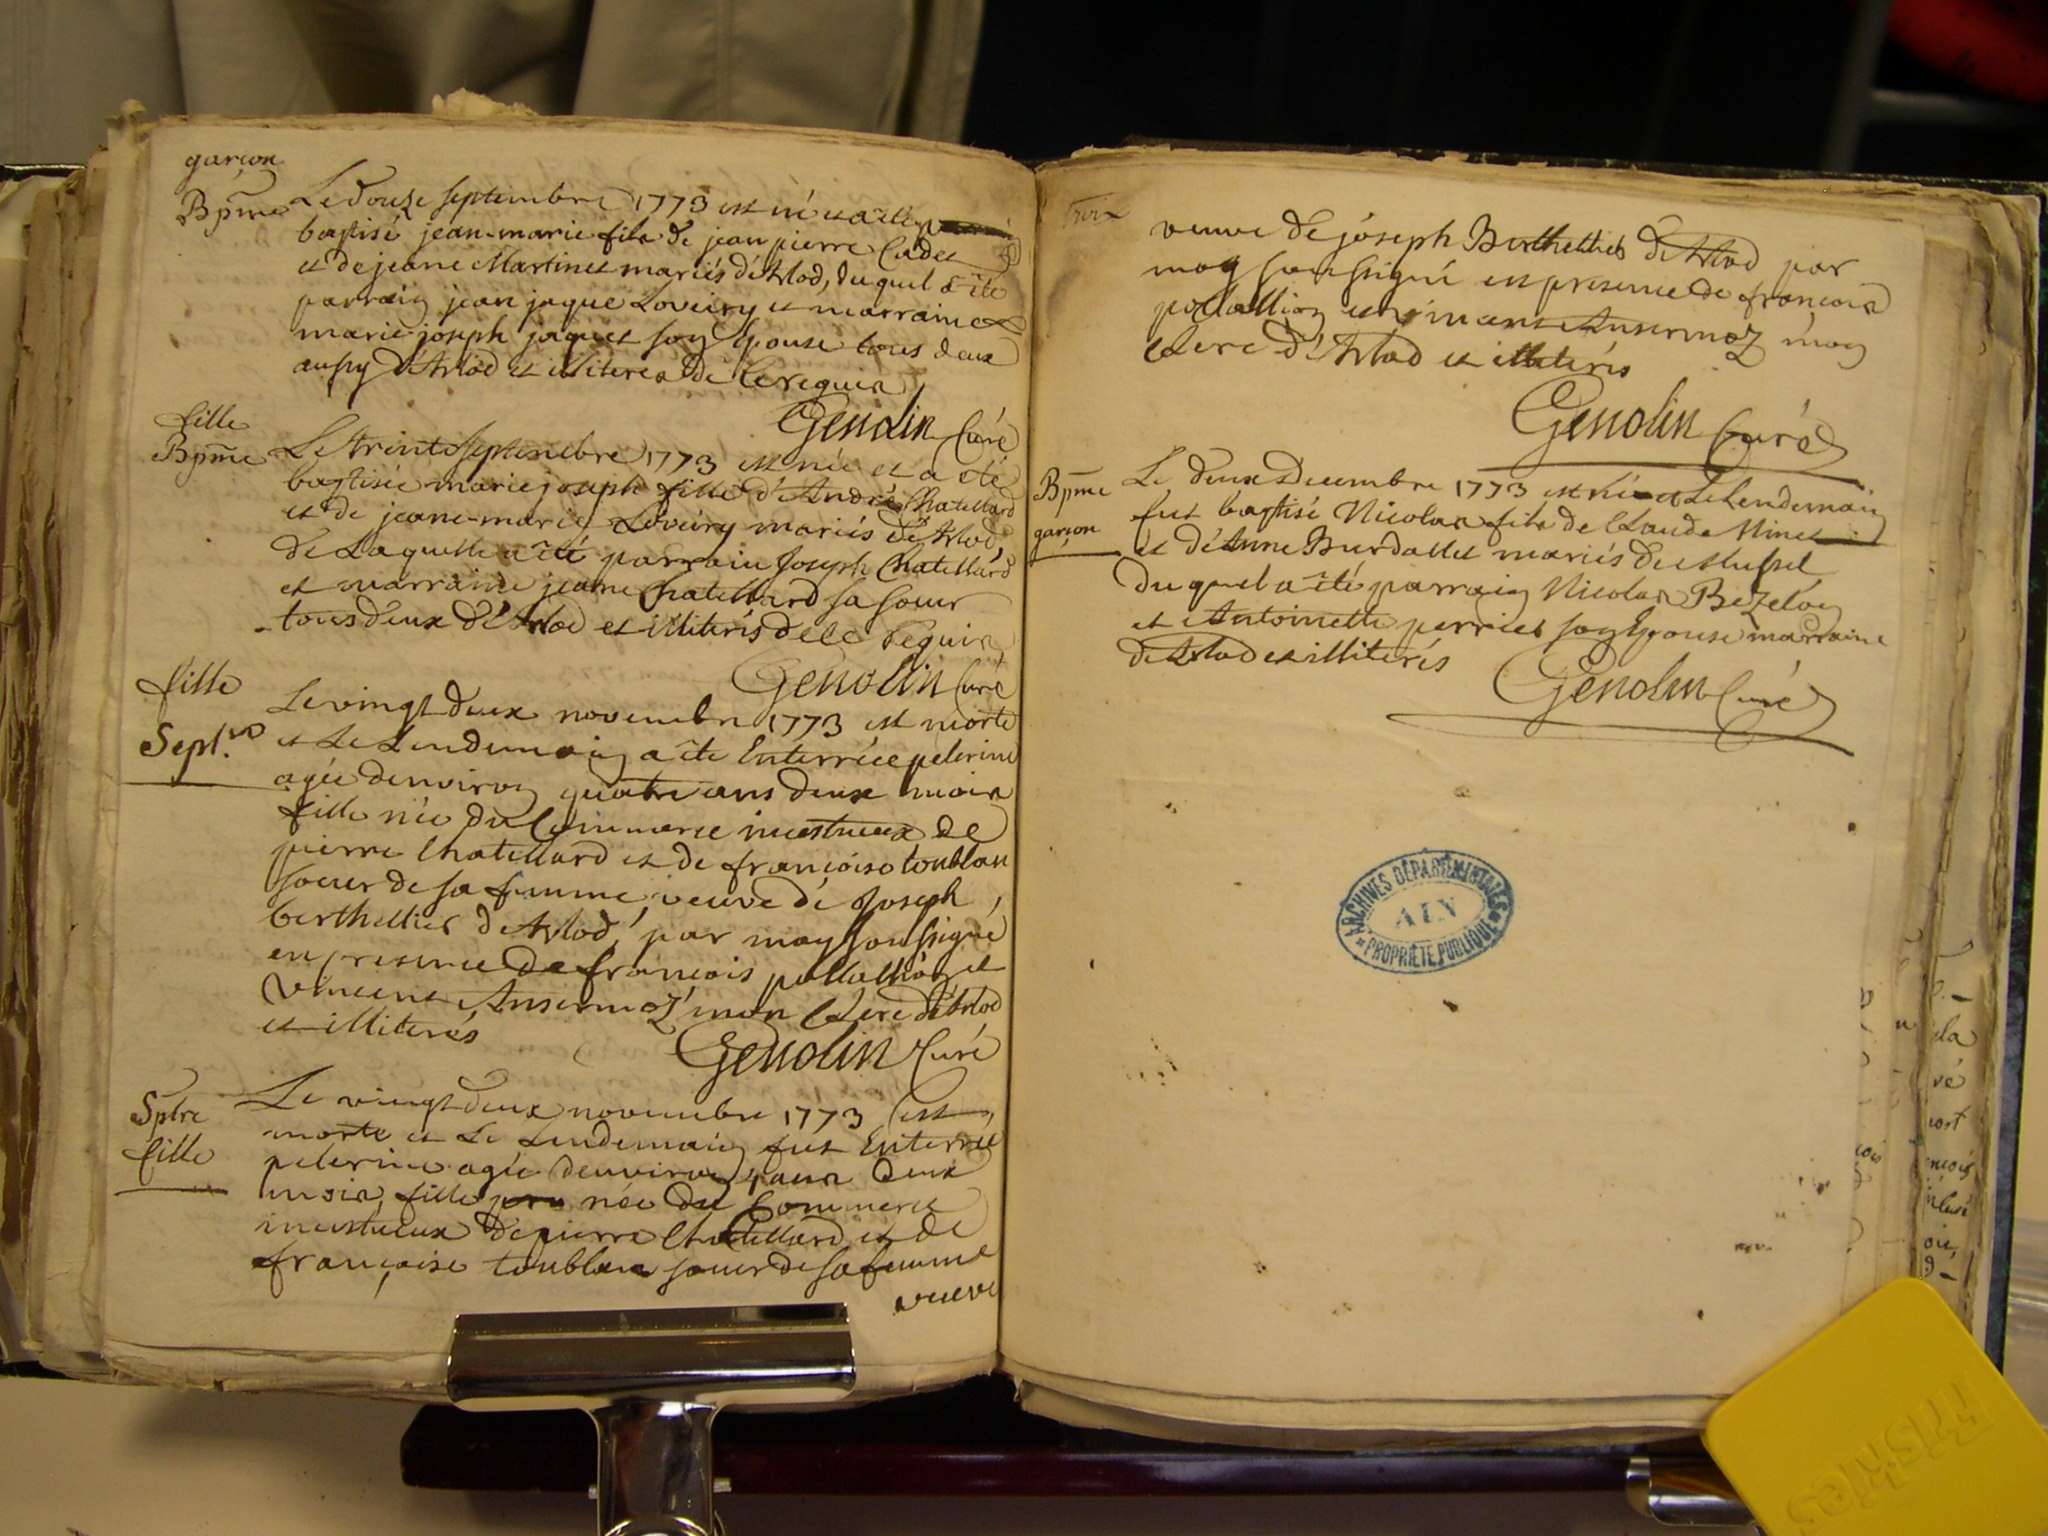 garçon
Bpme
Le douze septembre 1773 est né et a été
baptisé jean-marie fils de jean pierre Cadet
et de jeane Martinet mariés d'Arlod, duquel a été
parrain jean jaque Loveiry et marraine
marie joseph jaquet son Epouse tous deux
aussy d'Arlod et illiteres de ce requis
Genolin Curé
fille
Bpme
Le trente septembre 1773 est née et a été
baptisée marie joseph fille d'André Chatellard
et de jeane-marie Loveiry mariés d'Arlod
de Laquelle a été parrain Joseph Chatellard
et marraine jeane Chatellard sa soeur
tous deux d'Arlod et illiterés de ce requis
Genolin Curé
fille
Sept.re
Le vingt deux novembre 1773 est morte
et Le Lendemain a été Enterrée pelerine
agée denviron quatre ans deux mois
fille née du Commerce incestueux de
pierre Chatellard et de françoise toublan
soeur de sa femme veuve de Joseph
berthellier d'Arlod, par moy soussigné
en presence de françois pollallion et
Vincent Ansermoz mon Clerc d'Arlod
et illiterés
Genolin Curé
Sptre
fille
Le vingt deux novembre 1773 est
morte et Le Lendemain fut Enterrée
pelerine agée denviron 4 ans deux
mois, fille née du Commerce
incestueux de pierre Chatellard et de
françoise toublan soeur de sa femme
veuve
veuve de joseph Berthellier d'Arlod par
moy soussigné en presence de francois
pollallion et Ansermoz mon
Clerc d'Arlod et illiterés
Genolin Curé
Bpme
garçon
Le deux Decembre 1773 est né et Le Lendemain
fut baptisé Nicolas fils de Claude Minet
et d'Anne Burdallet mariés de Mussel
du quel a été parrain Nicolas Bezelon
et Antoinette perrier son Epouse marraine
d'Arlod et illiterés
Genolin Curé
ARCHIVES DÉPARTEMENTALES
AIN
PROPRIÉTÉ PUBLIQUE
Friskies